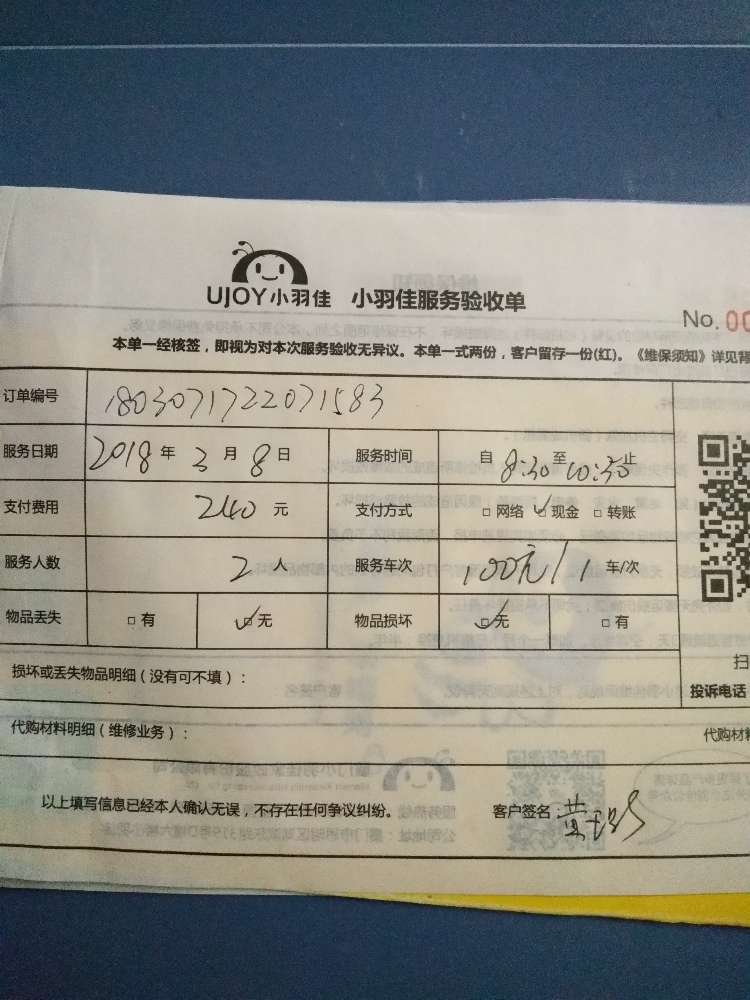 UJOY小羽佳 小羽佳服务验收单
No. 00
本单一经核签，即视为对本次服务验收无异议。本单一式两份，客户留存一份(红)。《维保须知》详见背
订单编号 1803071722071583
服务日期 2018年3月8日 服务时间 自8:30至10:30止
支付费用 240元 支付方式 □网络 ☑现金 □转账
服务人数 2人 服务车次 100元/1车/次
物品丢失 □有 ☑无 物品损坏 ☑无 □有
损坏或丢失物品明细（没有可不填）：
扫
投诉电话
代购材料明细（维修业务）： 代购材料
以上填写信息已经本人确认无误，不存在任何争议纠纷。 客户签名 黄